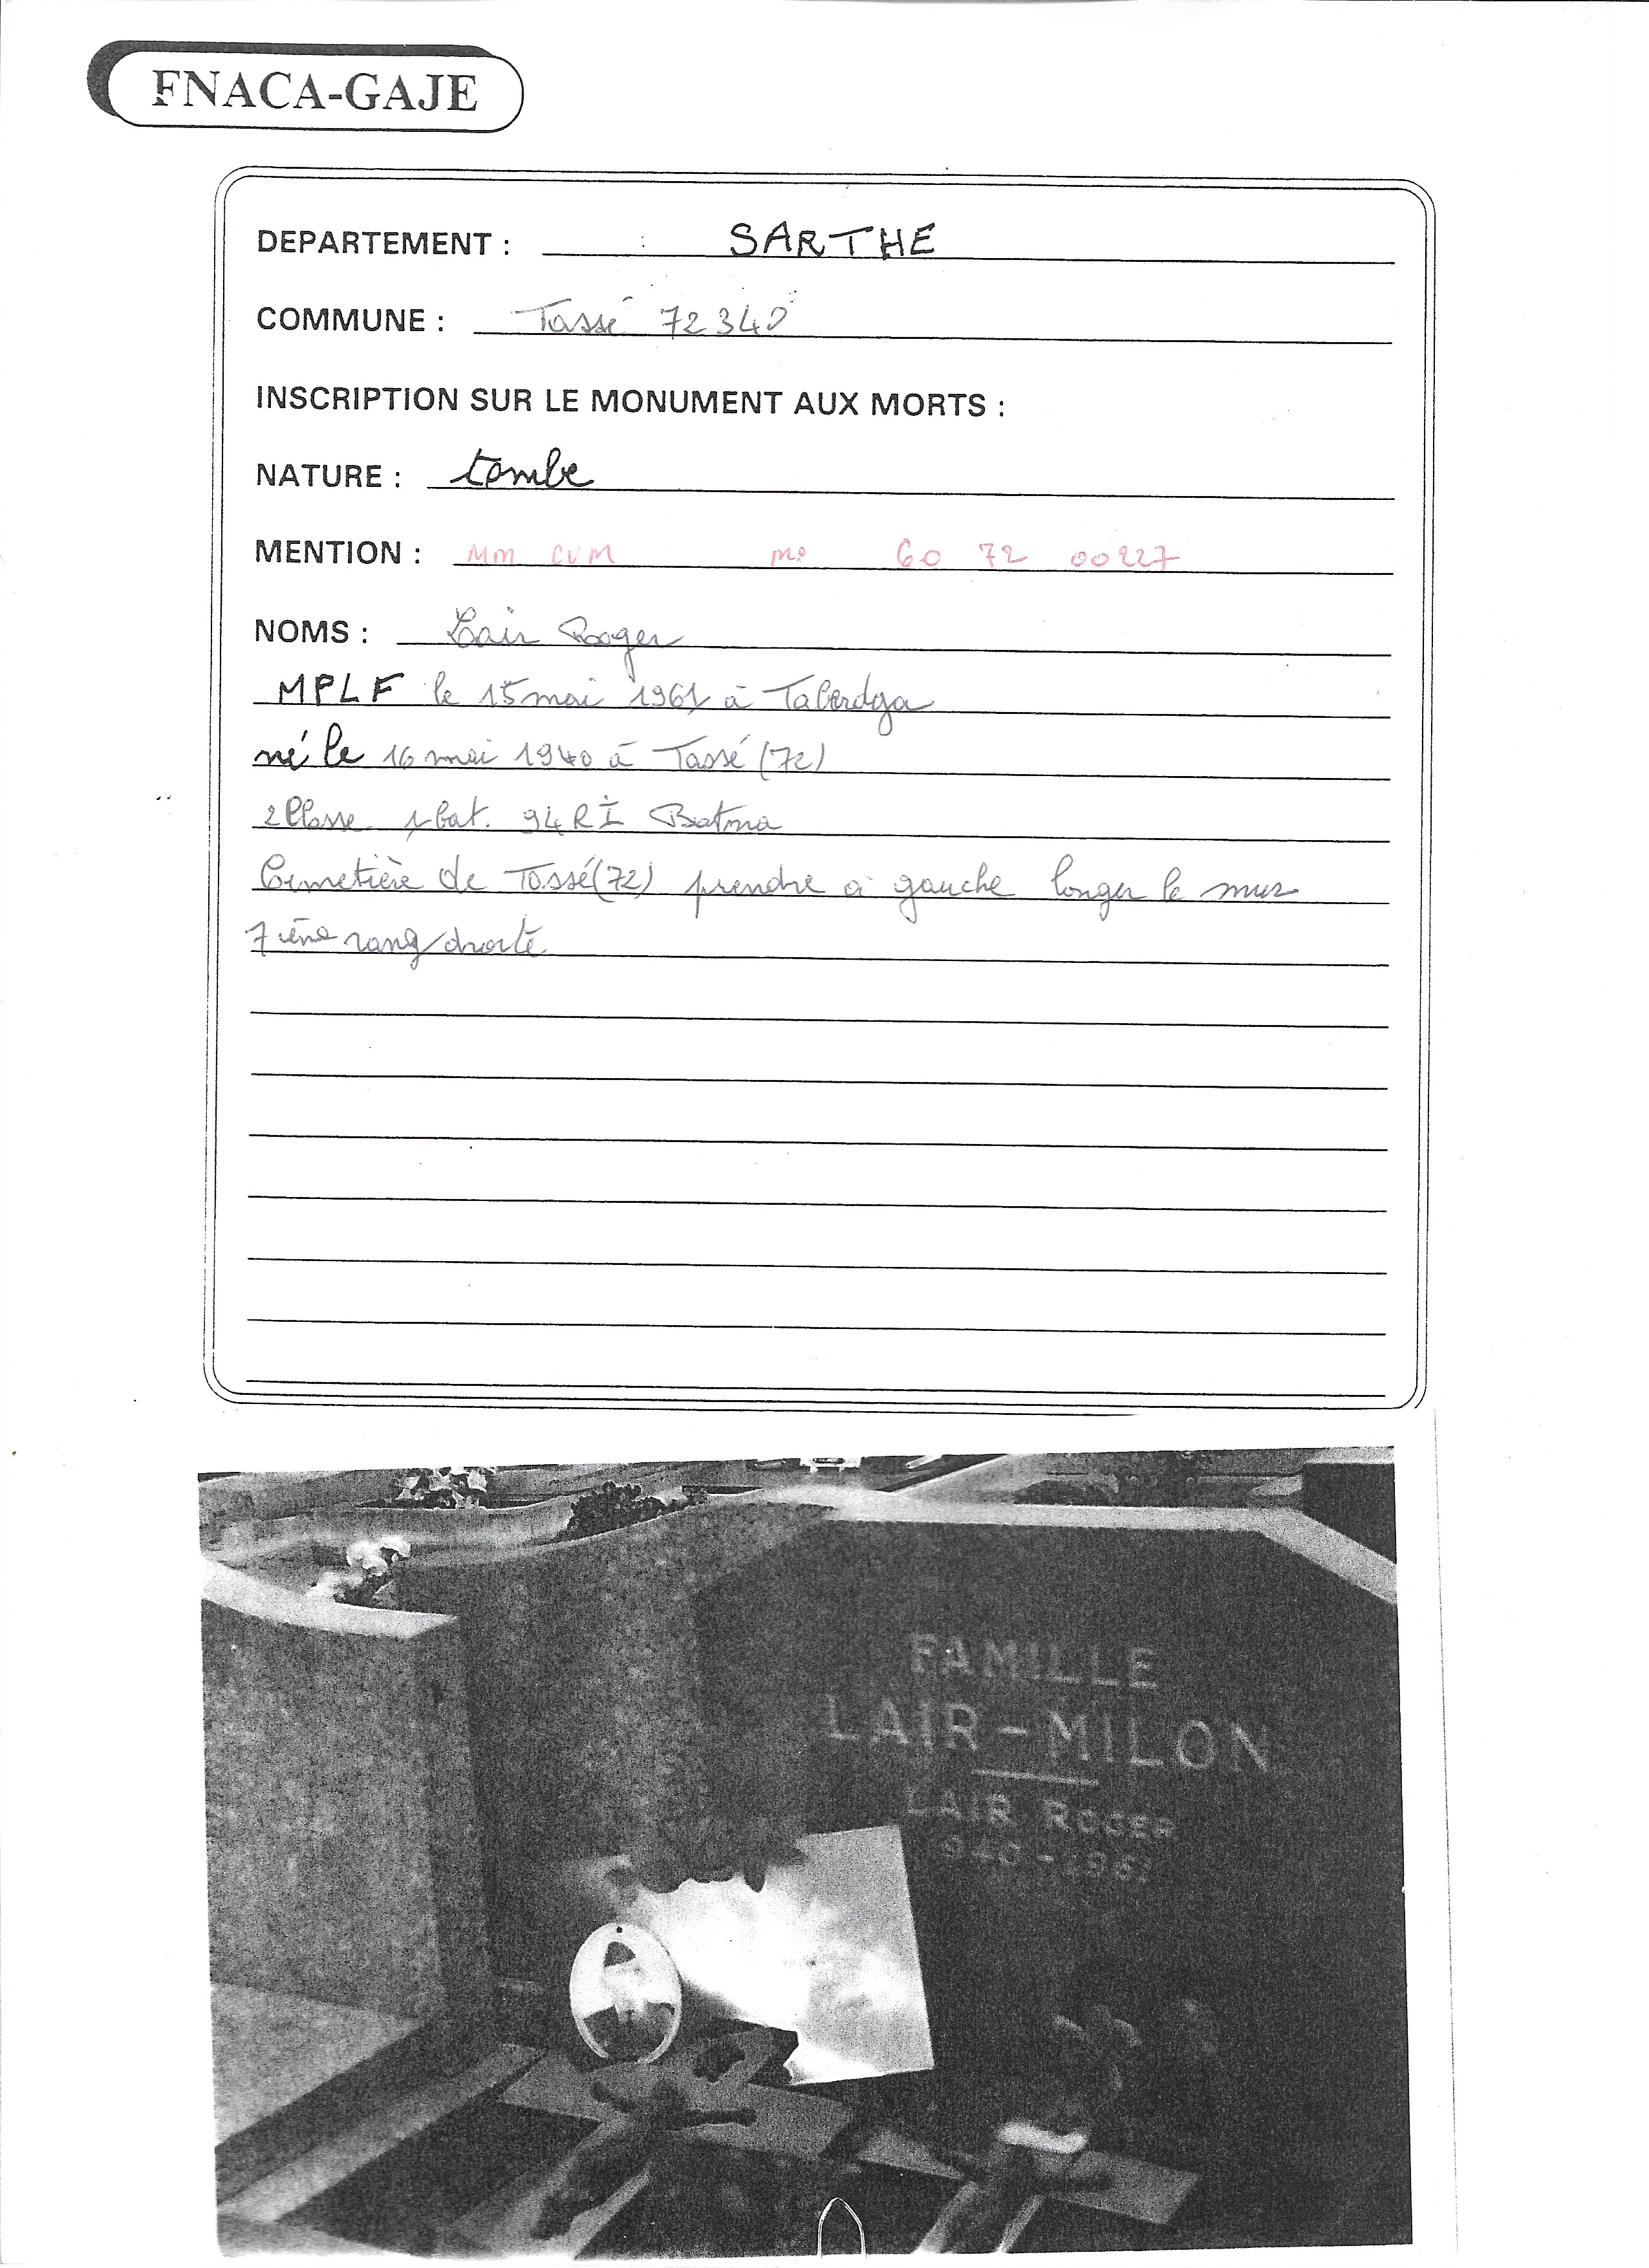 FNACA-GAJE
DEPARTEMENT : SARTHE
COMMUNE : Tassé 72340
INSCRIPTION SUR LE MONUMENT AUX MORTS :
NATURE : tombe
MENTION : MM CVM no 60 72 00227
NOMS : Lair Roger
MPLF le 15 mai 1961 à Taberdga
né le 16 mai 1940 à Tassé (72)
2 Classe 1 bat. 94 RI Batna
Cimetière de Tassé (72) prendre à gauche longer le mur
7 ième rang droite
FAMILLE
LAIR-MILON
LAIR ROGER
1940-1961